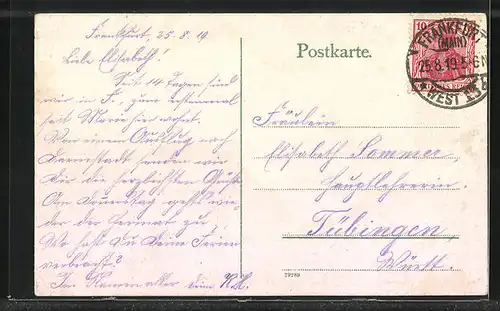 Frankfurt, 25.8.19
Liebe Elisabeth!
Seit 14 Tagen sind
wir in F., zum erstenmal
seit Marie hier wohnt.
Von einem Ausflug nach
Darmstadt senden wir
Dir die herzlichsten Grüße.
Am Donnerstag geht's wie-
der der Heimat zu.
Wo hast Du Deine Ferien
verbracht?
Im Namen aller Deine
Postkarte.
10
FRANKFURT
(MAIN)
25.8.19
WEST
Fräulein
Elisabeth Sommer
Hauptlehrerin
Tübingen
Württ.